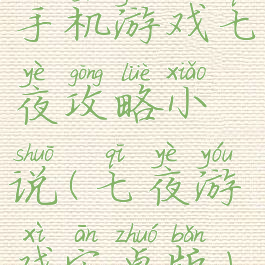 手机游戏七
yè gōng lüè xiǎo
夜攻略小
shuō qī yè yóu
说(七夜游
xì ān zhuó bǎn
戏安卓版)